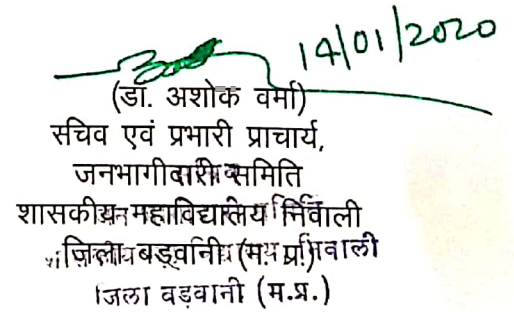 14/01/2020
(डॉ. अशोक वर्मा)
सचिव एवं प्रभारी प्राचार्य,
जनभागीदारी समिति
शासकीय महाविद्यालय निवाली
जिला बड़वानी (म.प्र.) निवाली
जिला बड़वानी (म.प्र.)